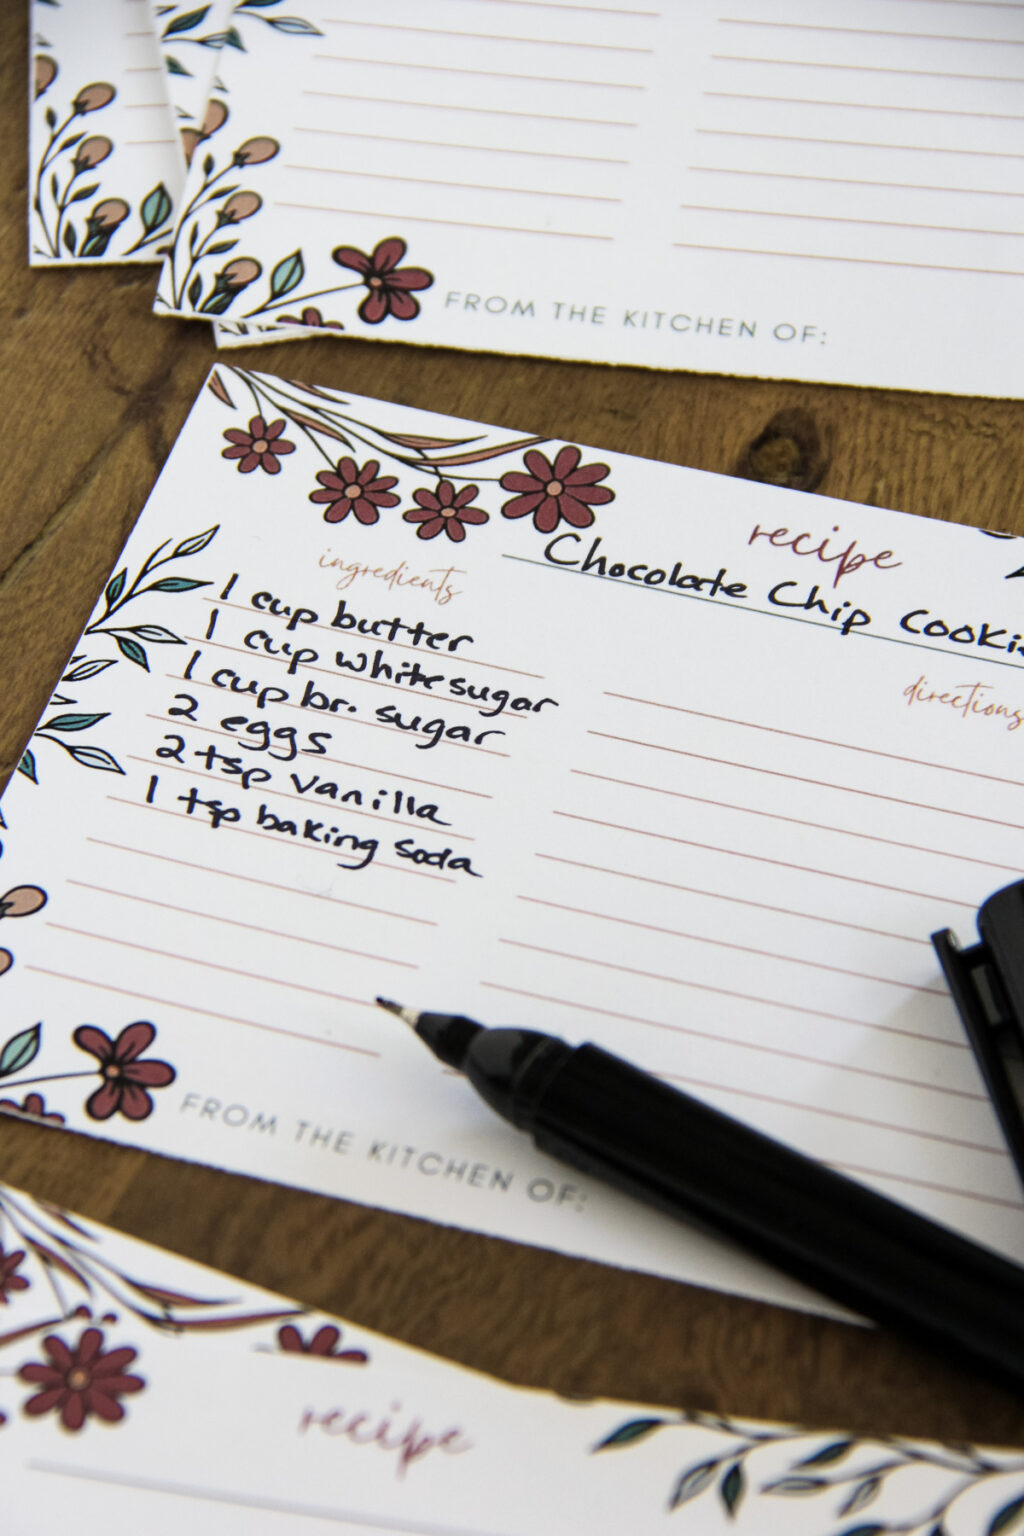 FROM THE KITCHEN OF:
recipe
Chocolate Chip
ingredients
directions
1 cup butter
1 cup white sugar
1 cup br. sugar
2 eggs
2 tsp vanilla
1 tsp baking soda
FROM THE KITCHEN OF:
recipe